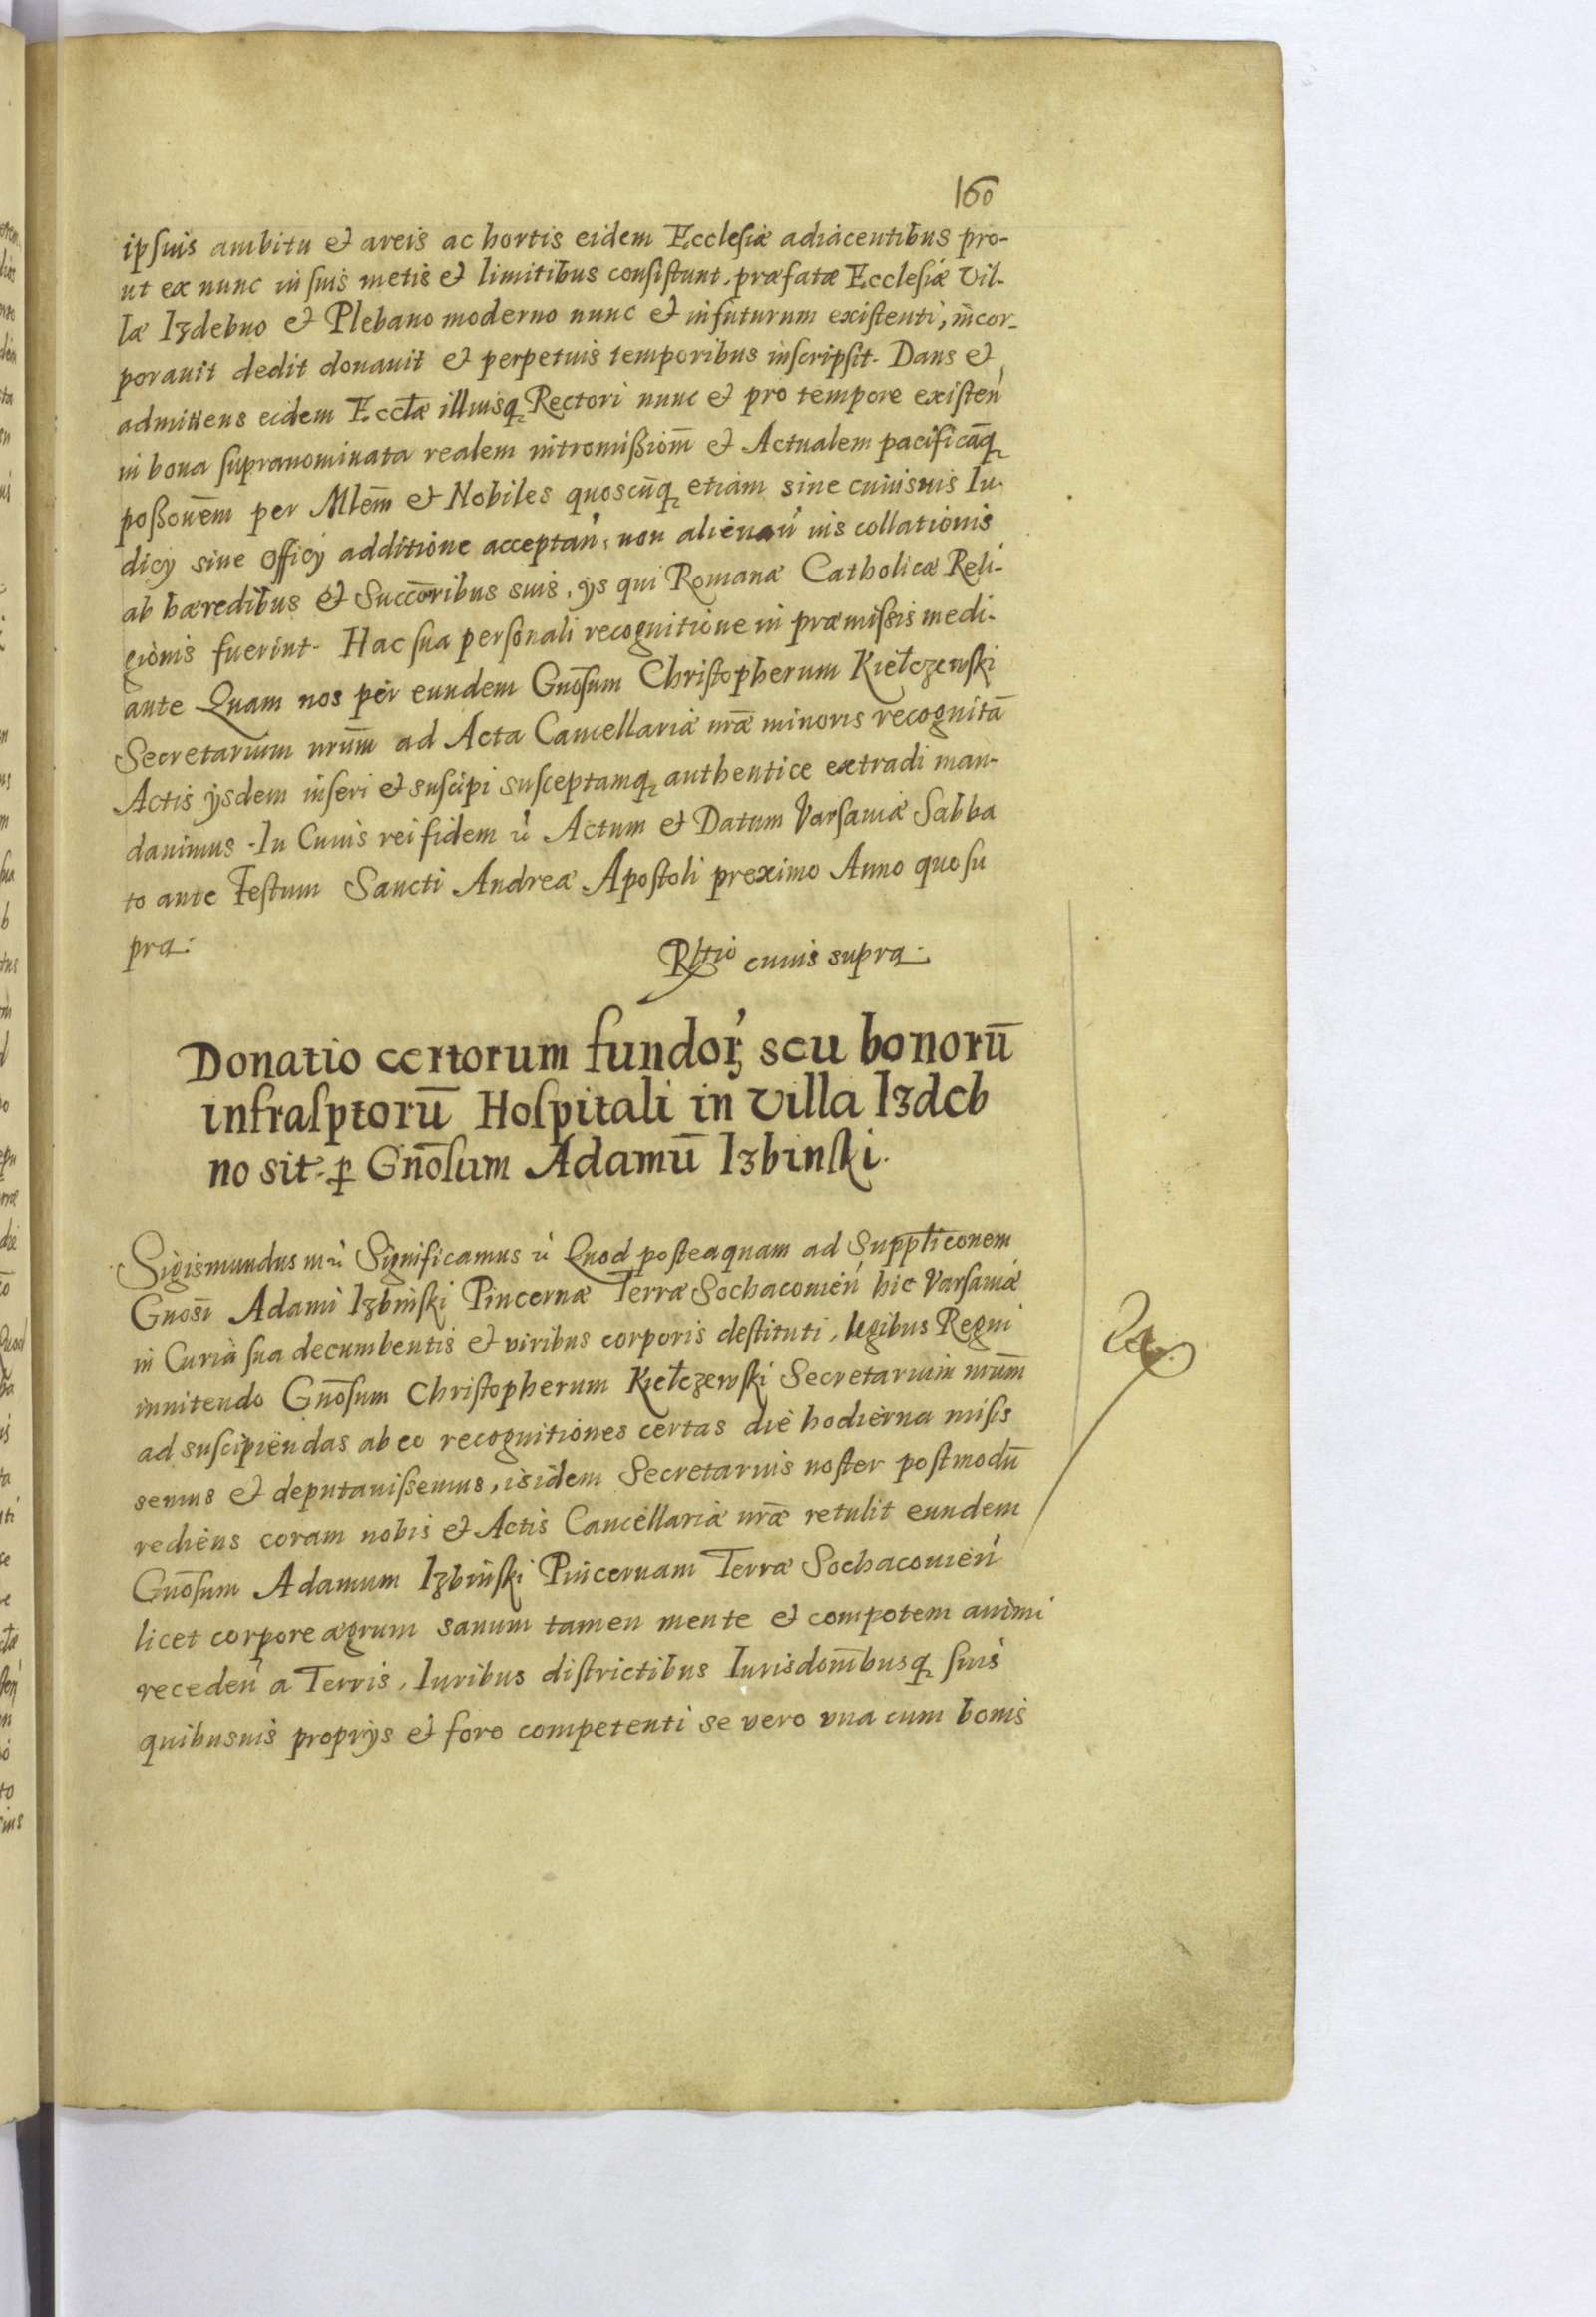 160
ipsuis ambitu et areis ac hortis eidem Ecclesiæ adiacentibus pro-
ut ex nunc in suis metis et limitibus consistunt, præfatæ Ecclesiæ Vil-
læ Izdebno et Plebano moderno nunc et in futurum existenti, incor-
porauit dedit donauit et perpetuis temporibus inscripsit. Dans et
admittens eidem Eccłæ illiusq Rectori nunc et pro tempore existeń
in bona supranominata realem intromißiom̃ et Actualem pacificãq
poßonem̃ per Mlem̃ et Nobiles quoscũq etiam sine cuiusuis Iu-
dicÿ siue Officÿ additione acceptań, non alienań iuis collationis
ab hæredibus et Succoribus̃ suis, ÿs qui Romanæ Catholicæ Reli-
gionis fuerint. Hac sua personali recognitione in præmissis medi-
ante Quam nos per eundem Gnõsum Christopherum Kiełczewski
Secretarium nrũm ad Acta Cancellariæ nræ̃ minoris recognitã
Actis ÿsdem inseri et suscipi susceptamq authentice extradi man-
dauimus. In Cuius rei fidem ů Actum et Datum Varsauiæ Sabba
to ante Festum Sancti Andreæ Apostoli preximo Anno quo su
pra.
Rltio cuius supra.
Donatio certorum fundoꝝ seu bonorũ
infrasptorũ Hospitali in Villa Izdeb
no sit. ꝑ Gnõsum Adamũ Izbinski.
Sigismundus mů Significamus ů Quod posteaquam ad Suppłiconem
Gnosĩ Adami Izbinski Pincernæ Terræ Sochacouień hic Varsauiæ
in Curia sua decumbentis et viribus corporis destituti, legibus Regni
innitendo Gnõsum Christopherum Kiełczewski Secretarium nrũm
ad suscipiendas ab eo recognitiones certas die hodierna misis
semus et deputauissemus, isidem Secretarius noster postmodũ
rediens coram nobis et Actis Cancellariæ nræ̃ retulit eundem
Gnõsum Adamum Izbinski Pincernam Terræ Sochacouień
licet corpore ægrum sanum tamen mente et compotem animi
recedeń a Terris, Iuribus districtibus Iurisdonĩbusq suis
quibusuis proprÿs et foro competenti se vero vna cum bonis